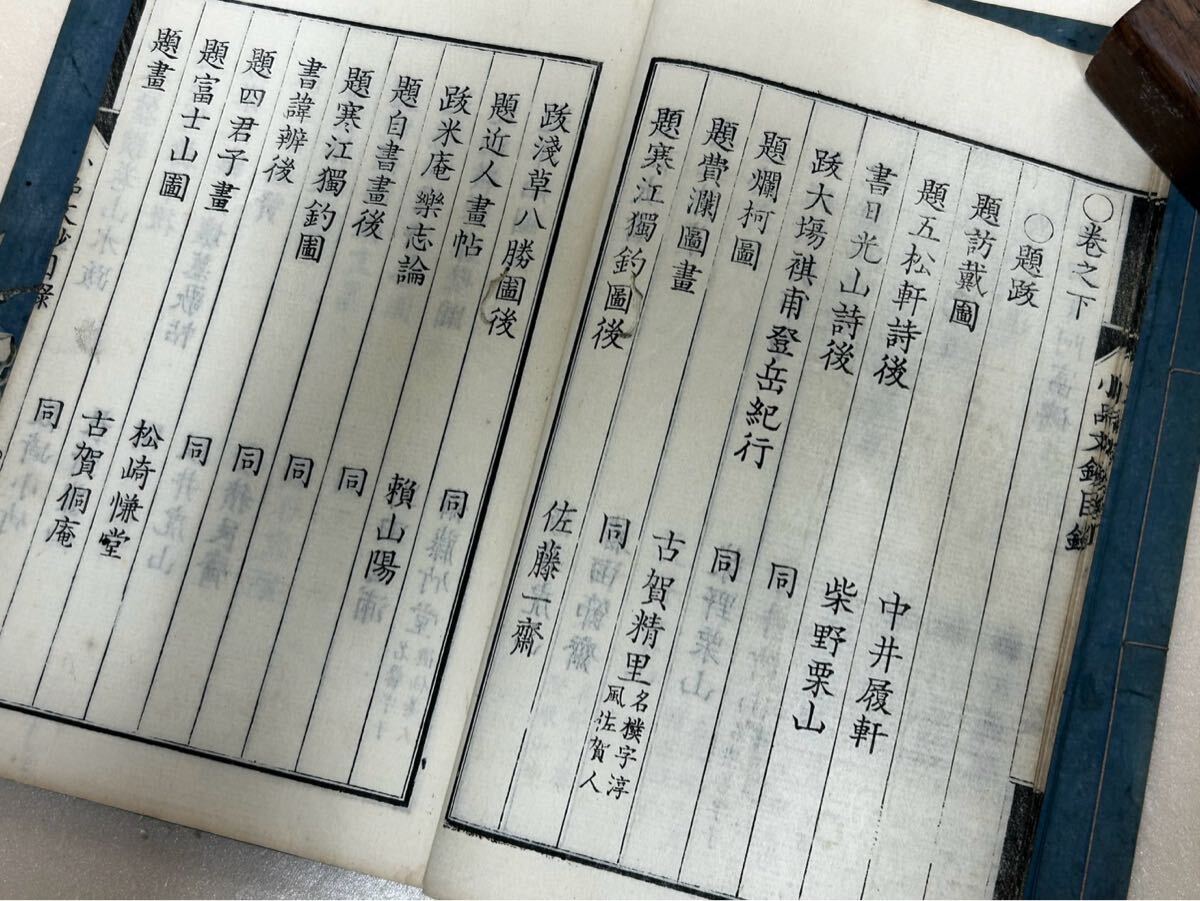 小品文鈔目錄
○卷之下
○題跋
題訪戴圖 中井履軒
題五松軒詩後 柴野栗山
書日光山詩後 同
跋大塲祺甫登岳紀行 同
題爛柯圖 古賀精里 名樸字淳風佐賀人
題費瀾圖畫 同
題寒江獨釣圖後 佐藤一齋
跋淺草八勝圖後 同
題近人畫帖 賴山陽
跋米庵樂志論 同
題自書畫後 同
題寒江獨釣圖 同
書諱辨後 同
題四君子畫 松崎慊堂
題富士山圖 古賀侗庵
題畫 同